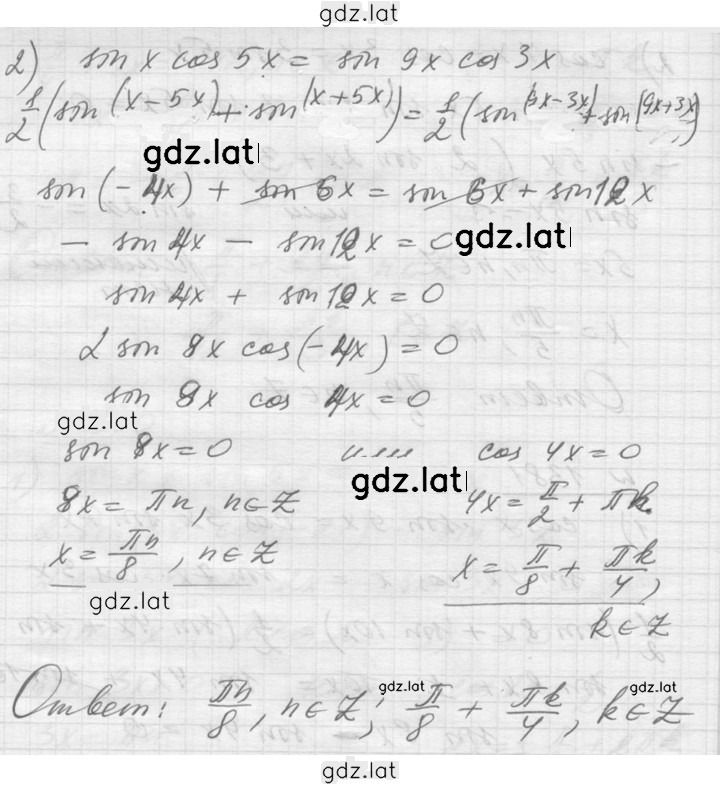 gdz.lat
2) sin x cos 5x = sin 9x cos 3x
1/2 (sin (x - 5x) + sin (x + 5x)) = 1/2 (sin (9x - 3x) + sin (9x + 3x))
gdz.lat
sin (- 4x) + sin 6x = sin 6x + sin 12x
- sin 4x - sin 12x = 0
gdz.lat
sin 4x + sin 12x = 0
2 sin 8x cos (- 4x) = 0
sin 8x cos 4x = 0
gdz.lat
sin 8x = 0 или cos 4x = 0
gdz.lat
8x = πn, n ∈ Z 4x = π/2 + πk
x = πn/8, n ∈ Z x = π/8 + πk/4,
gdz.lat
k ∈ Z
gdz.lat gdz.lat
Ответ: πn/8, n ∈ Z; π/8 + πk/4, k ∈ Z
gdz.lat